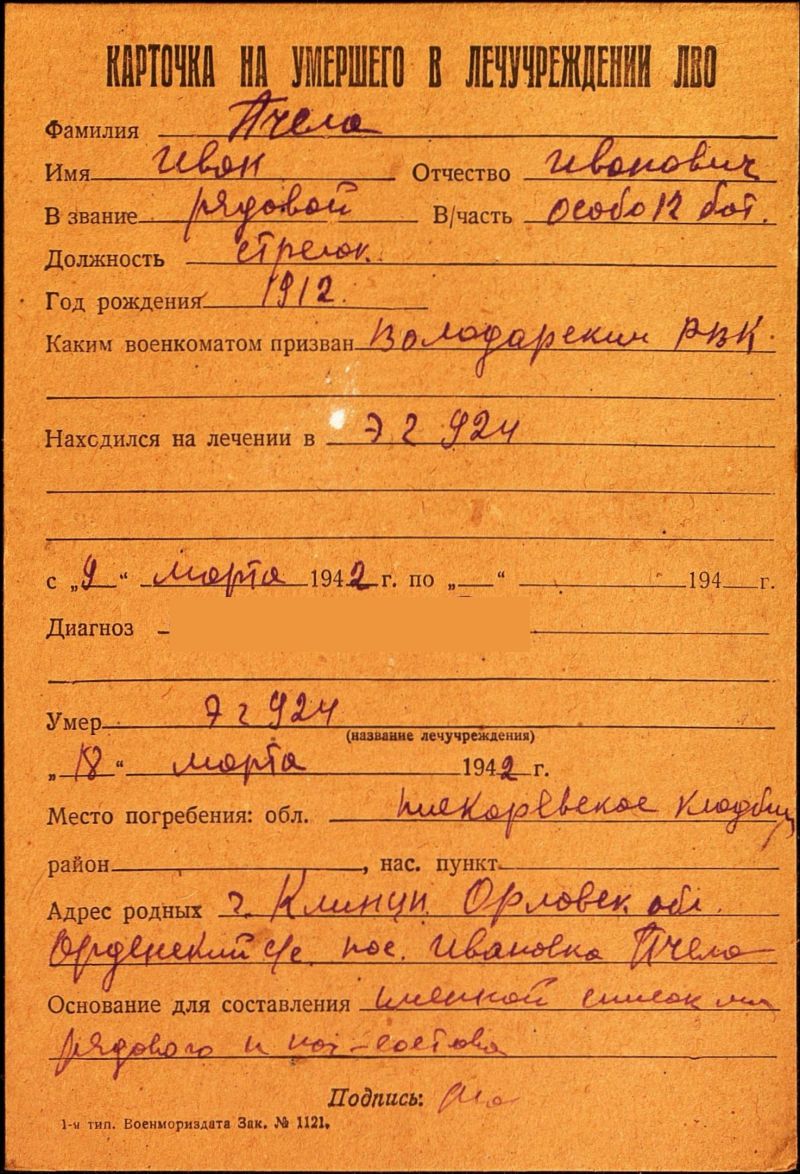 КАРТОЧКА НА УМЕРШЕГО В ЛЕЧУЧРЕЖДЕНИИ ЛВО
Фамилия Пчела
Имя Иван Отчество Иванович
В звание рядовой В/часть особо 12 бат.
Должность стрелок.
Год рождения 1912.
Каким военкоматом призван Володарский РВК.
Находился на лечении в ЭГ 924
с „9“ марта 1942 г. по „ “ 194 г.
Диагноз
Умер ЭГ 924
(название лечучреждения)
„18“ марта 1942 г.
Место погребения: обл. Пискаревское кладбищ
район , нас. пункт
Адрес родных г. Клинцы Орловск обл.
с/с. пос. Ивановка Пчела
Основание для составления именной список
рядового и состава
Подпись:
1-я тип. Военмориздата Зак. № 1121.